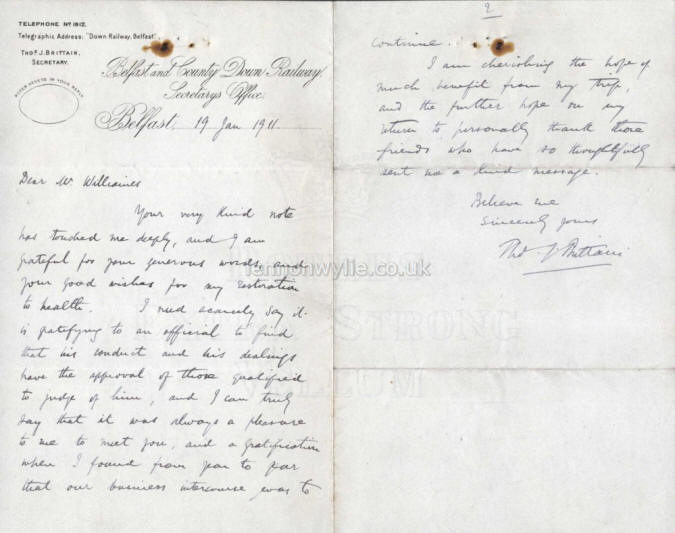 TELEPHONE Nº 1912.
Telegraphic Address: "Down Railway, Belfast".
THOS. J. BRITTAIN,
SECRETARY.
EITHER QUOTE IN YOUR REPLY
Belfast and County Down Railway
Secretary's Office
Belfast, 19 Jan 1911
Dear Mr Williames
Your very kind note
has touched me deeply, and I am
grateful for your generous words, and
your good wishes for my restoration
to health. I need scarcely say it
is gratifying to an official to find
that his conduct and his dealings
have the approval of those qualified
to judge of him, and I can truly
say that it was always a pleasure
to me to meet you, and a gratification
when I found from year to year
that our business intercourse was to
2
continue.
I am cherishing the hope of
much benefit from my trip,
and the further hope on my
return to personally thank those
friends who have so thoughtfully
sent me a kind message.
Believe me
Sincerely yours
Tho J Brittain
lennonwylie.co.uk
STRONG
VELLUM